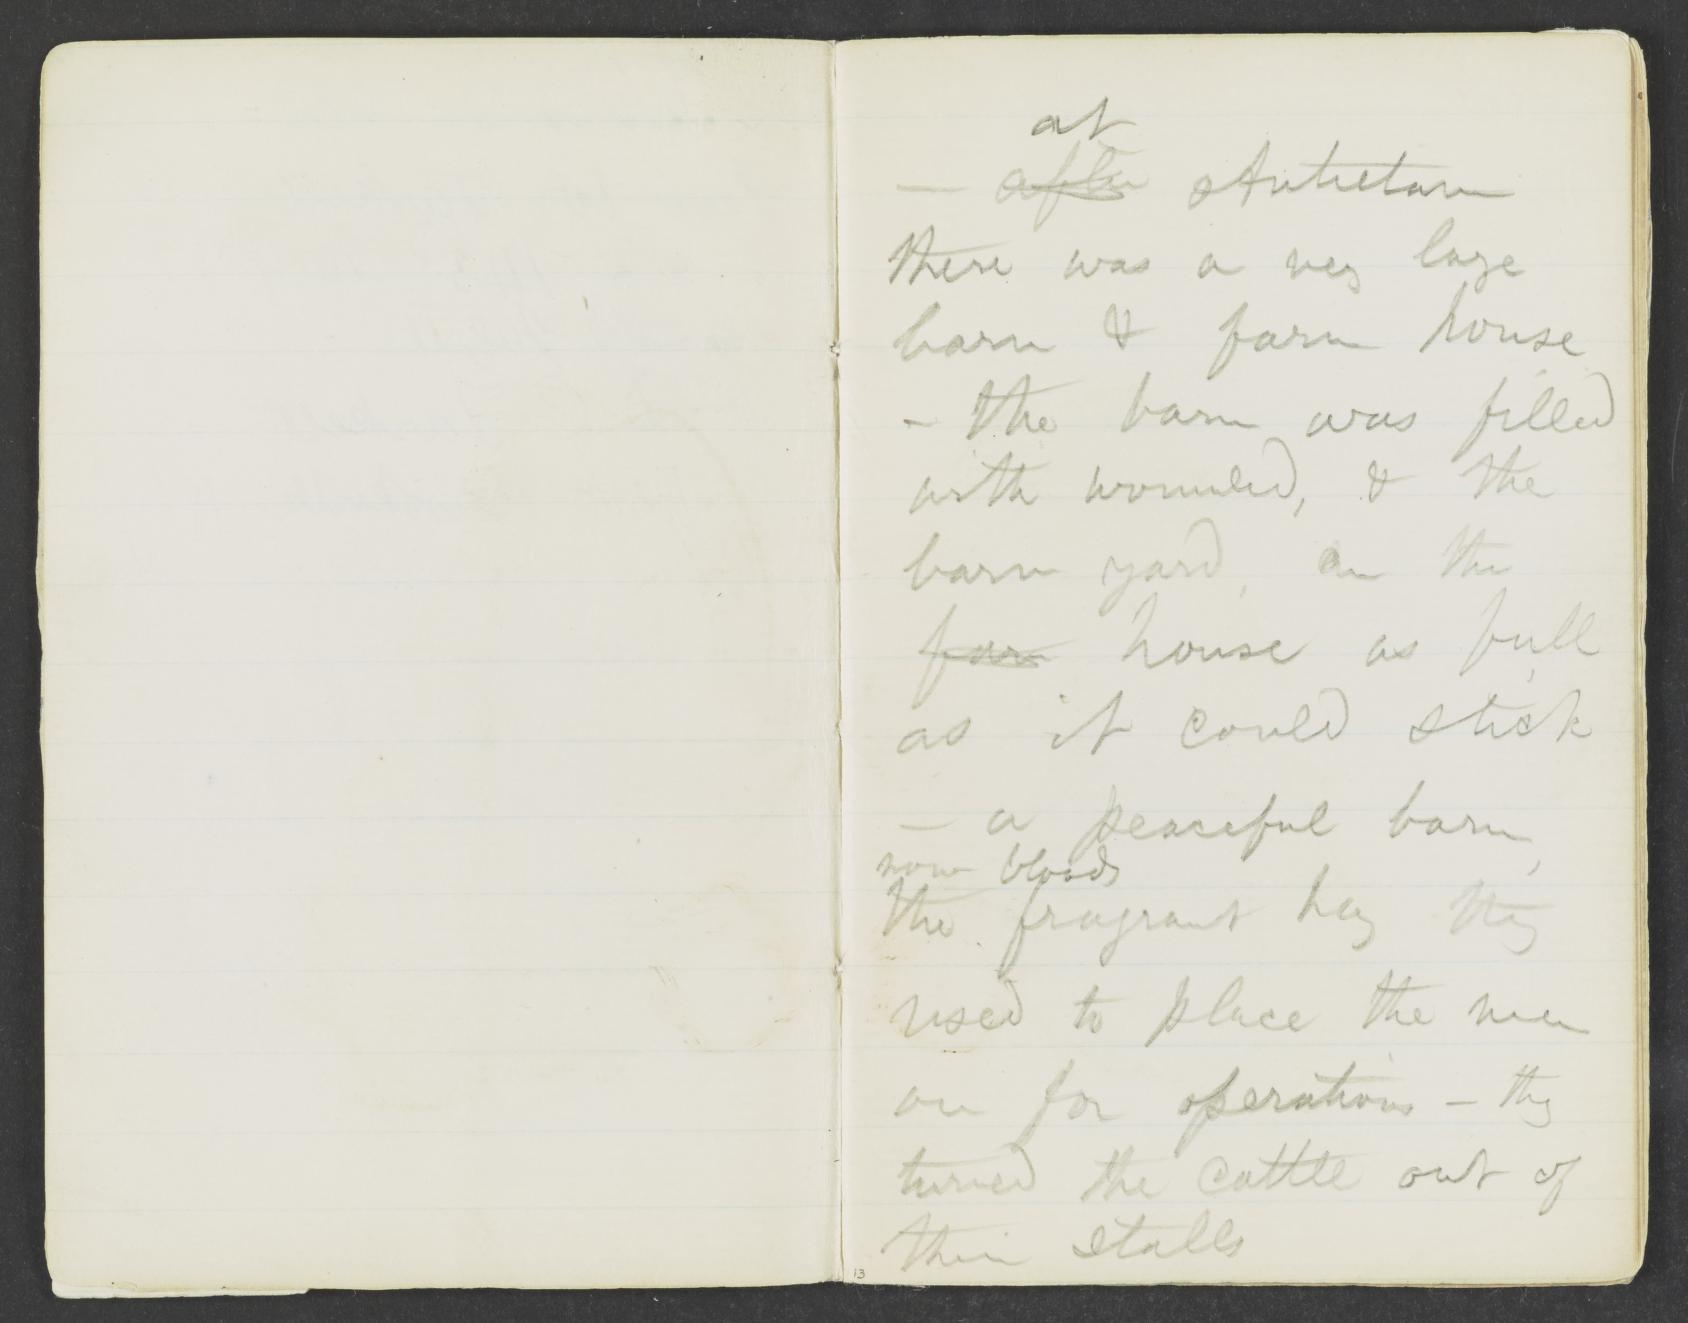 at
— after Antietam
there was a very large
barn & farm house
- the barn was filled
with wounded, & the
barn yard, on the
far house as full
as it could stick
— a peaceful barn,
now bloody
the fragrant hay they
used to place the men
on for operations — they
turned the cattle out of
their stalls
13